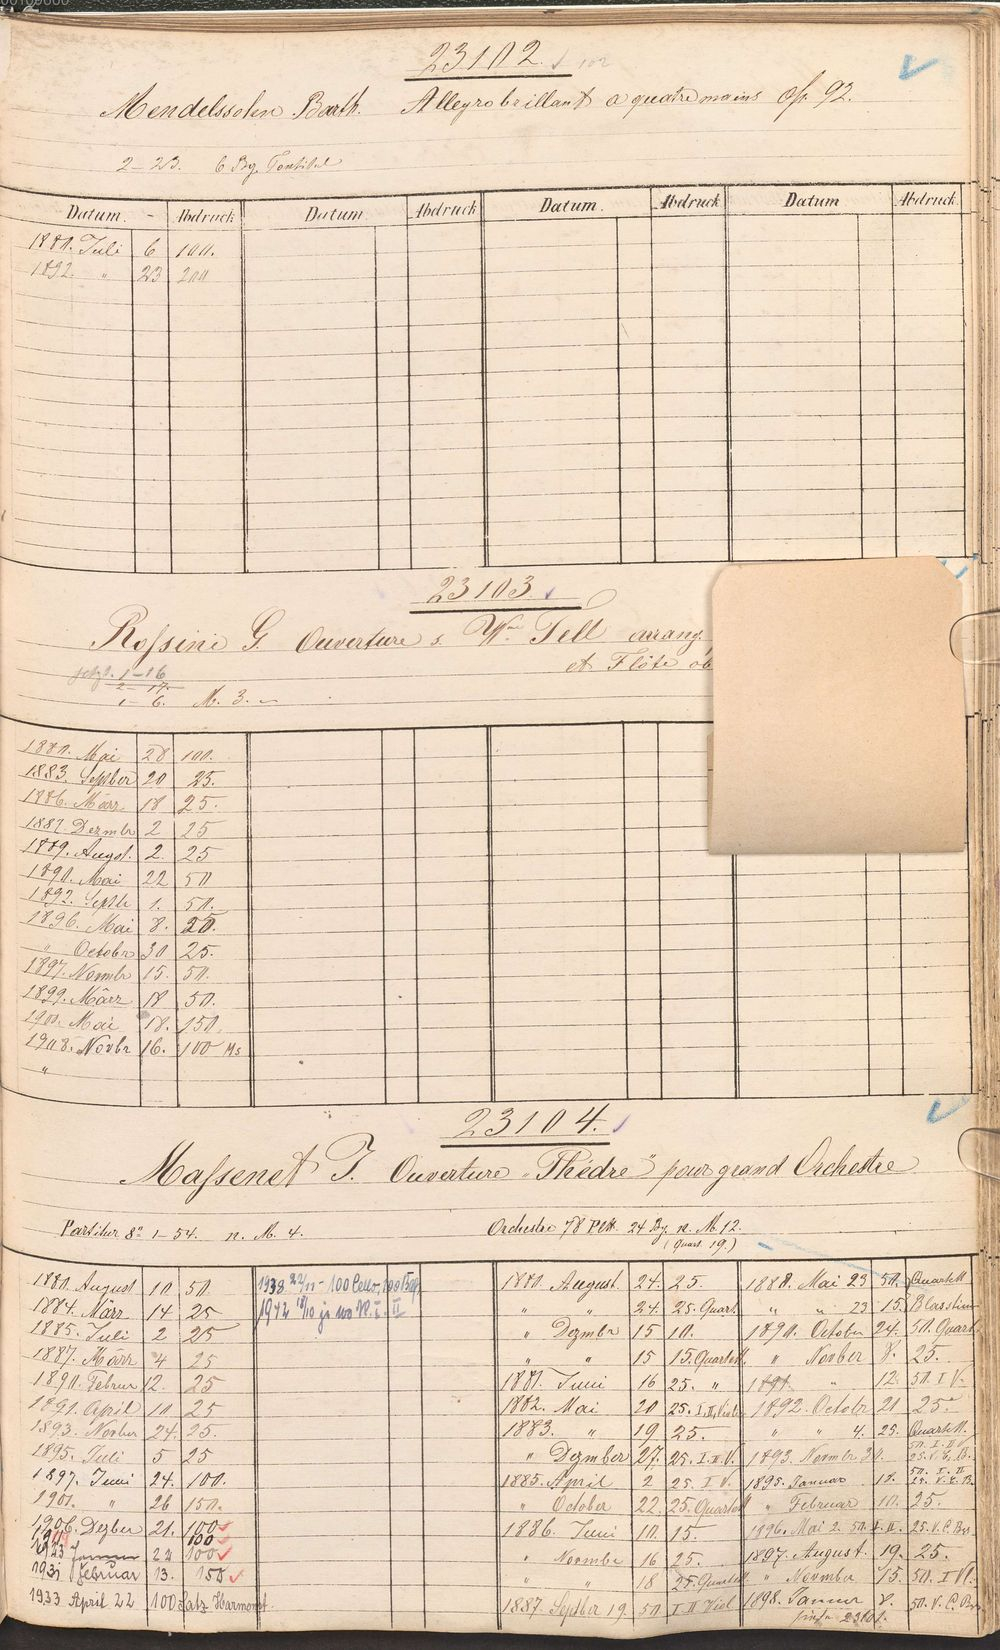 23102.
Mendelssohn Barth. Allegro brillant a quatre mains Op. 92.
2–23. 6 Bg.
Datum. Abdruck Datum Abdruck Datum. Abdruck Datum Abdruck
1880. Juli 6 100.
1892. " 23 200
23103.
Rossini G. Ouverture s. Wm Tell arrang.
et Flöte ob
jetzt. 1–16
2–17.
1–6. M. 3.–
1880. Mai 28 100.
1883. Septber 20 25.
1886. März 18 25.
1887. Dezmbr 2 25
1889. Augst. 2. 25
1890. Mai 22 50
1892. Septb 1. 50.
1896. Mai 8. 25.
" Octobr 30 25.
1897. Novmbr 15. 50.
1899. März 18 50.
1900. Mai 18. 150.
1908. Novbr 16. 100 Ms
"
23104.
Massenet J. Ouverture "Phèdre" pour grand Orchestre
Partitur 8° 1–54. n. M. 4. Orchestre 78 Pltt. 24 Bg. n. M. 12.
(Quart. 19.)
1880. August 10 50.
1884. März 14 25
1885. Juli 2 25
1887. März 4 25
1890. Februr 12. 25
1891. April 10 25
1893. Novber 24. 25.
1895. Juli 5 25
1897. Juni 24. 100.
1901. " 26 150.
1906. Dezber 21. 100
100
1923 Januar 22 100
1931 Februar 13. 150
1933 April 22 100 Satz Harmonst.
1938 22/11 – 100 Cello, 100 Bass
1942 18/10 je 100 V. I. II
1880. August. 24. 25.
" " 24. 25. Quart.
" Dezmbr 15 10.
" " 15 15. Quartett
1881. Juni 16 25. "
1882. Mai 20 25. I, II, Viola
1883. " 19 25.
" Dezmber 27. 25. I. II. V.
1885. April 2 25 I V.
" October 22. 25. Quartett
1886. Juni 10. 15.
" Novmbr 16 25.
" " 18 25. Quartett
1887 Septber 19. 50 I II Viol
1888. Mai 23 50. Quartett
" " 23 15. Blasstim
1890. October 24. 50. Quart.
" Novber 8. 25.
1891. " 12. 50. I V.
1892. Octobr 21 25.
" " 4. 25. Quartett.
1893. Novmbr 30. 50. I. II V. 25. V. C. B.
1895. Januar 18. 50. I. II 25. V. C. B.
" Februar 10. 25.
1896. Mai 2. 50. I. II. 25. V. C. Bss
1897. August. 19. 25.
" Novmber 15. 50. I Vl.
1898. Januar 8. 50. V. C. Bss